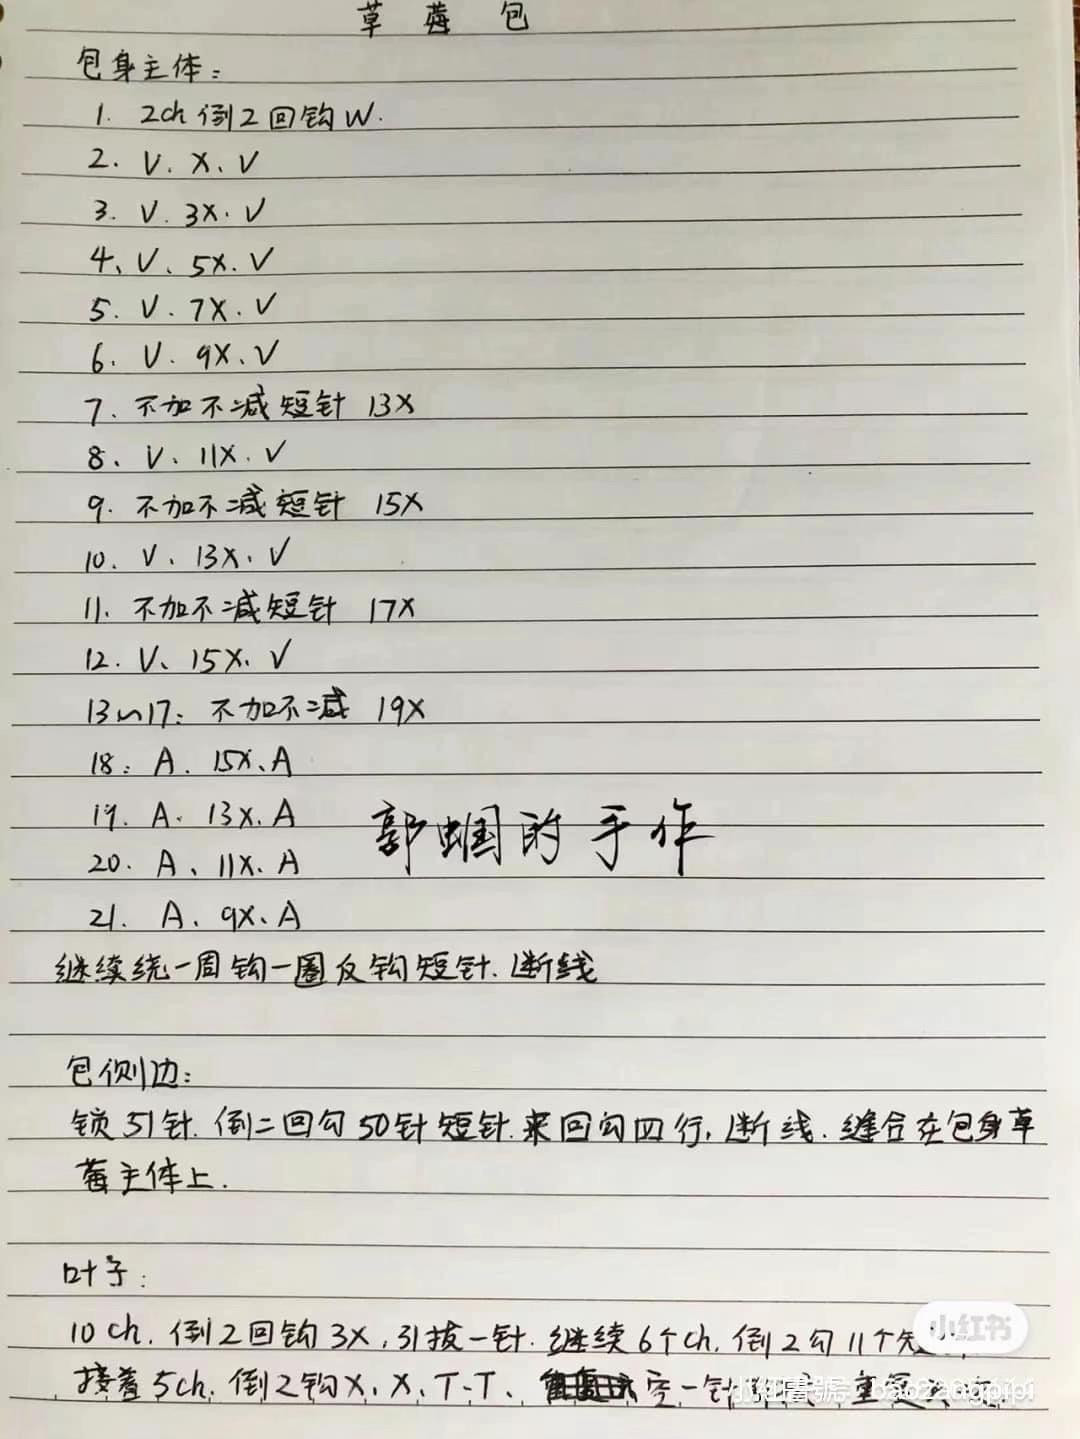 草莓包
包身主体:
1. 2ch 倒2回钩W.
2. V. X、V
3. V. 3X. V
4、V、5X. V
5. V. 7X. V
6. V. 9X、V
7. 不加不减短针 13X
8、V、11X. V
9. 不加不减短针 15X
10. V、13X. V
11. 不加不减短针 17X
12. V、15X、V
13~17: 不加不减 19X
18: A. 15X、A
19. A. 13X. A
郭蝈的手作
20. A、11X. A
21. A、9X、A
继续绕一周钩一圈反钩短针.断线
包侧边:
锁51针.倒二回勾50针短针.来回勾四行,断线.缝合在包身草
莓主体上.
叶子:
10ch. 倒2回钩3X,引拔一针.继续6个ch.倒2勾11个短
小红书
接着5ch.倒2钩X、X、T、T、空一针
小红書號: baozangpipi